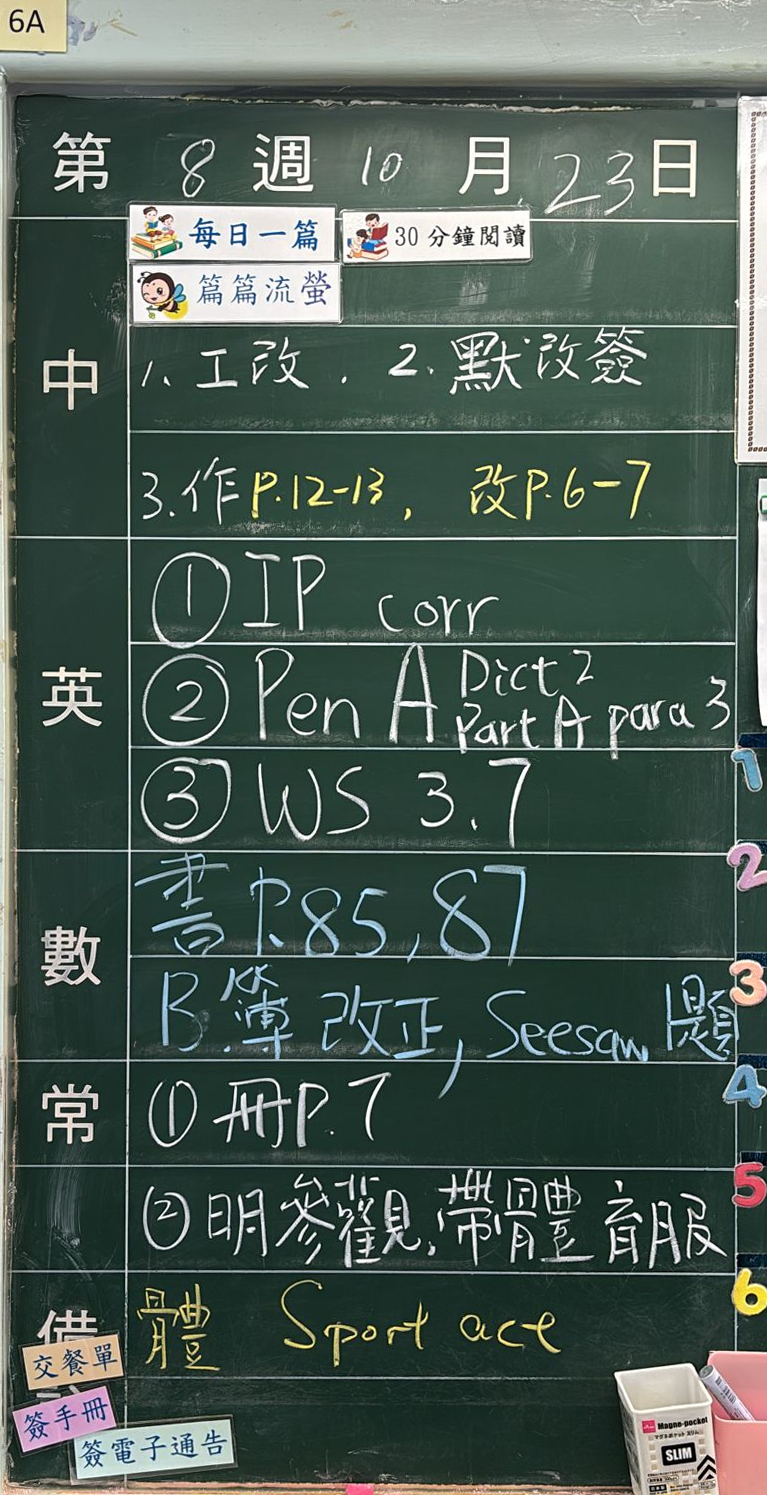 6A
第 8 週 10 月 23 日
每日一篇 30分鐘閱讀
篇篇流螢
中
1. 工改. 2. 默改簽
3. 作P.12-13, 改P.6-7
英
① IP corr
② Pen A Dict 2
Part A para 3
③ WS 3.7
數
書P.85,87
B.簿改正, Seesaw 1題
常
① 冊P.7
② 明參觀.帶體育服
備
體 Sport act
交餐單
簽手冊
簽電子通告
1
2
3
4
5
6
Magne-pocket
マグネポケット スリム
SLIM